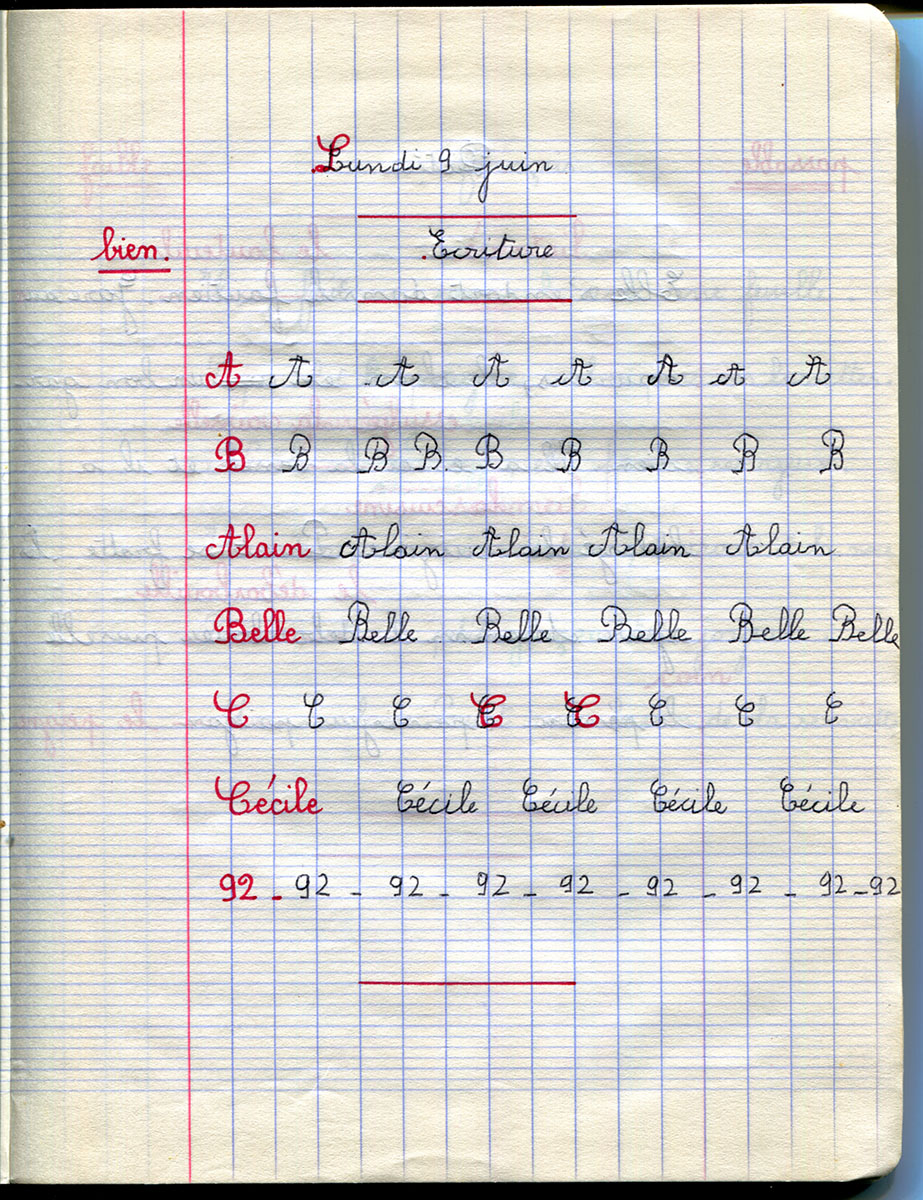 Lundi 9 juin
bien. Ecriture
A A A A A A A A
B B B B. B B B B B
Alain Alain Alain Alain Alain
Belle Belle Belle Belle Belle Belle
C C C C C C C C
Cécile Cécile Cécile Cécile Cécile
92 - 92 - 92 - 92 - 92 - 92 - 92 - 92 - 92